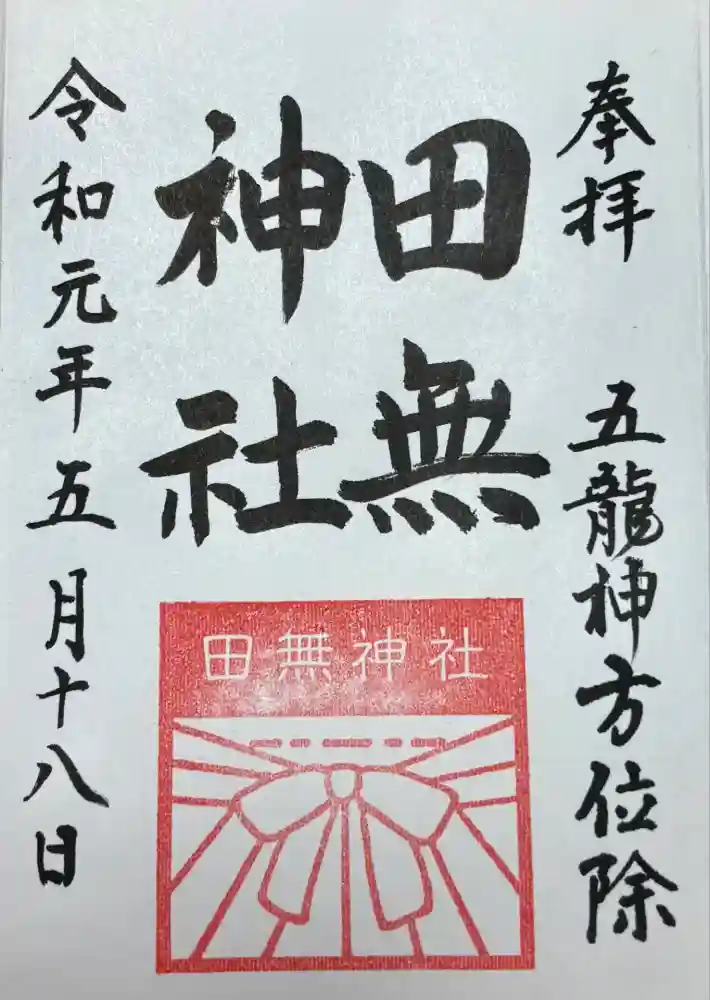 奉拝 五龍神方位除
田無
神社
令和元年五月十八日
田無神社